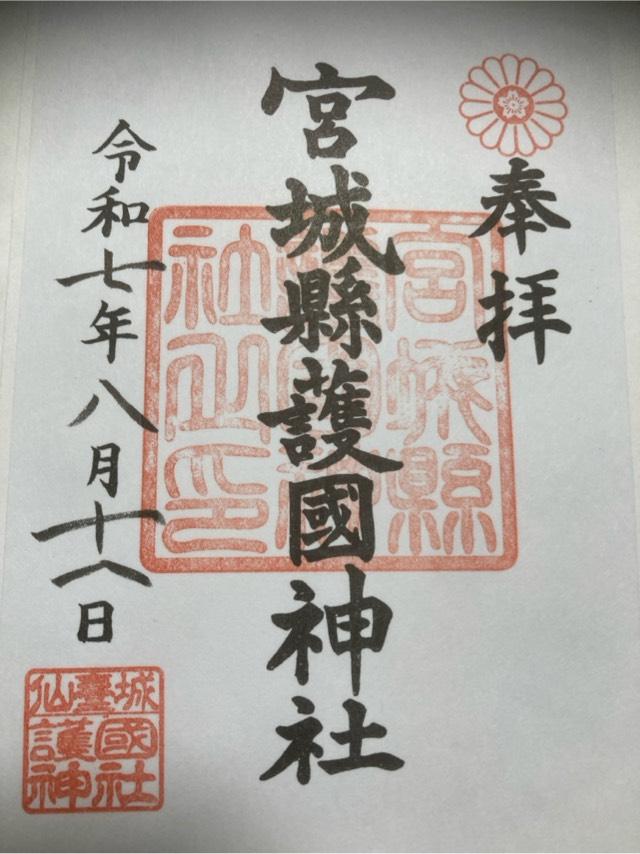 奉拝
宮城縣護國神社
令和七年八月十八日
宮城縣
社之印
仙臺城
護國
神社